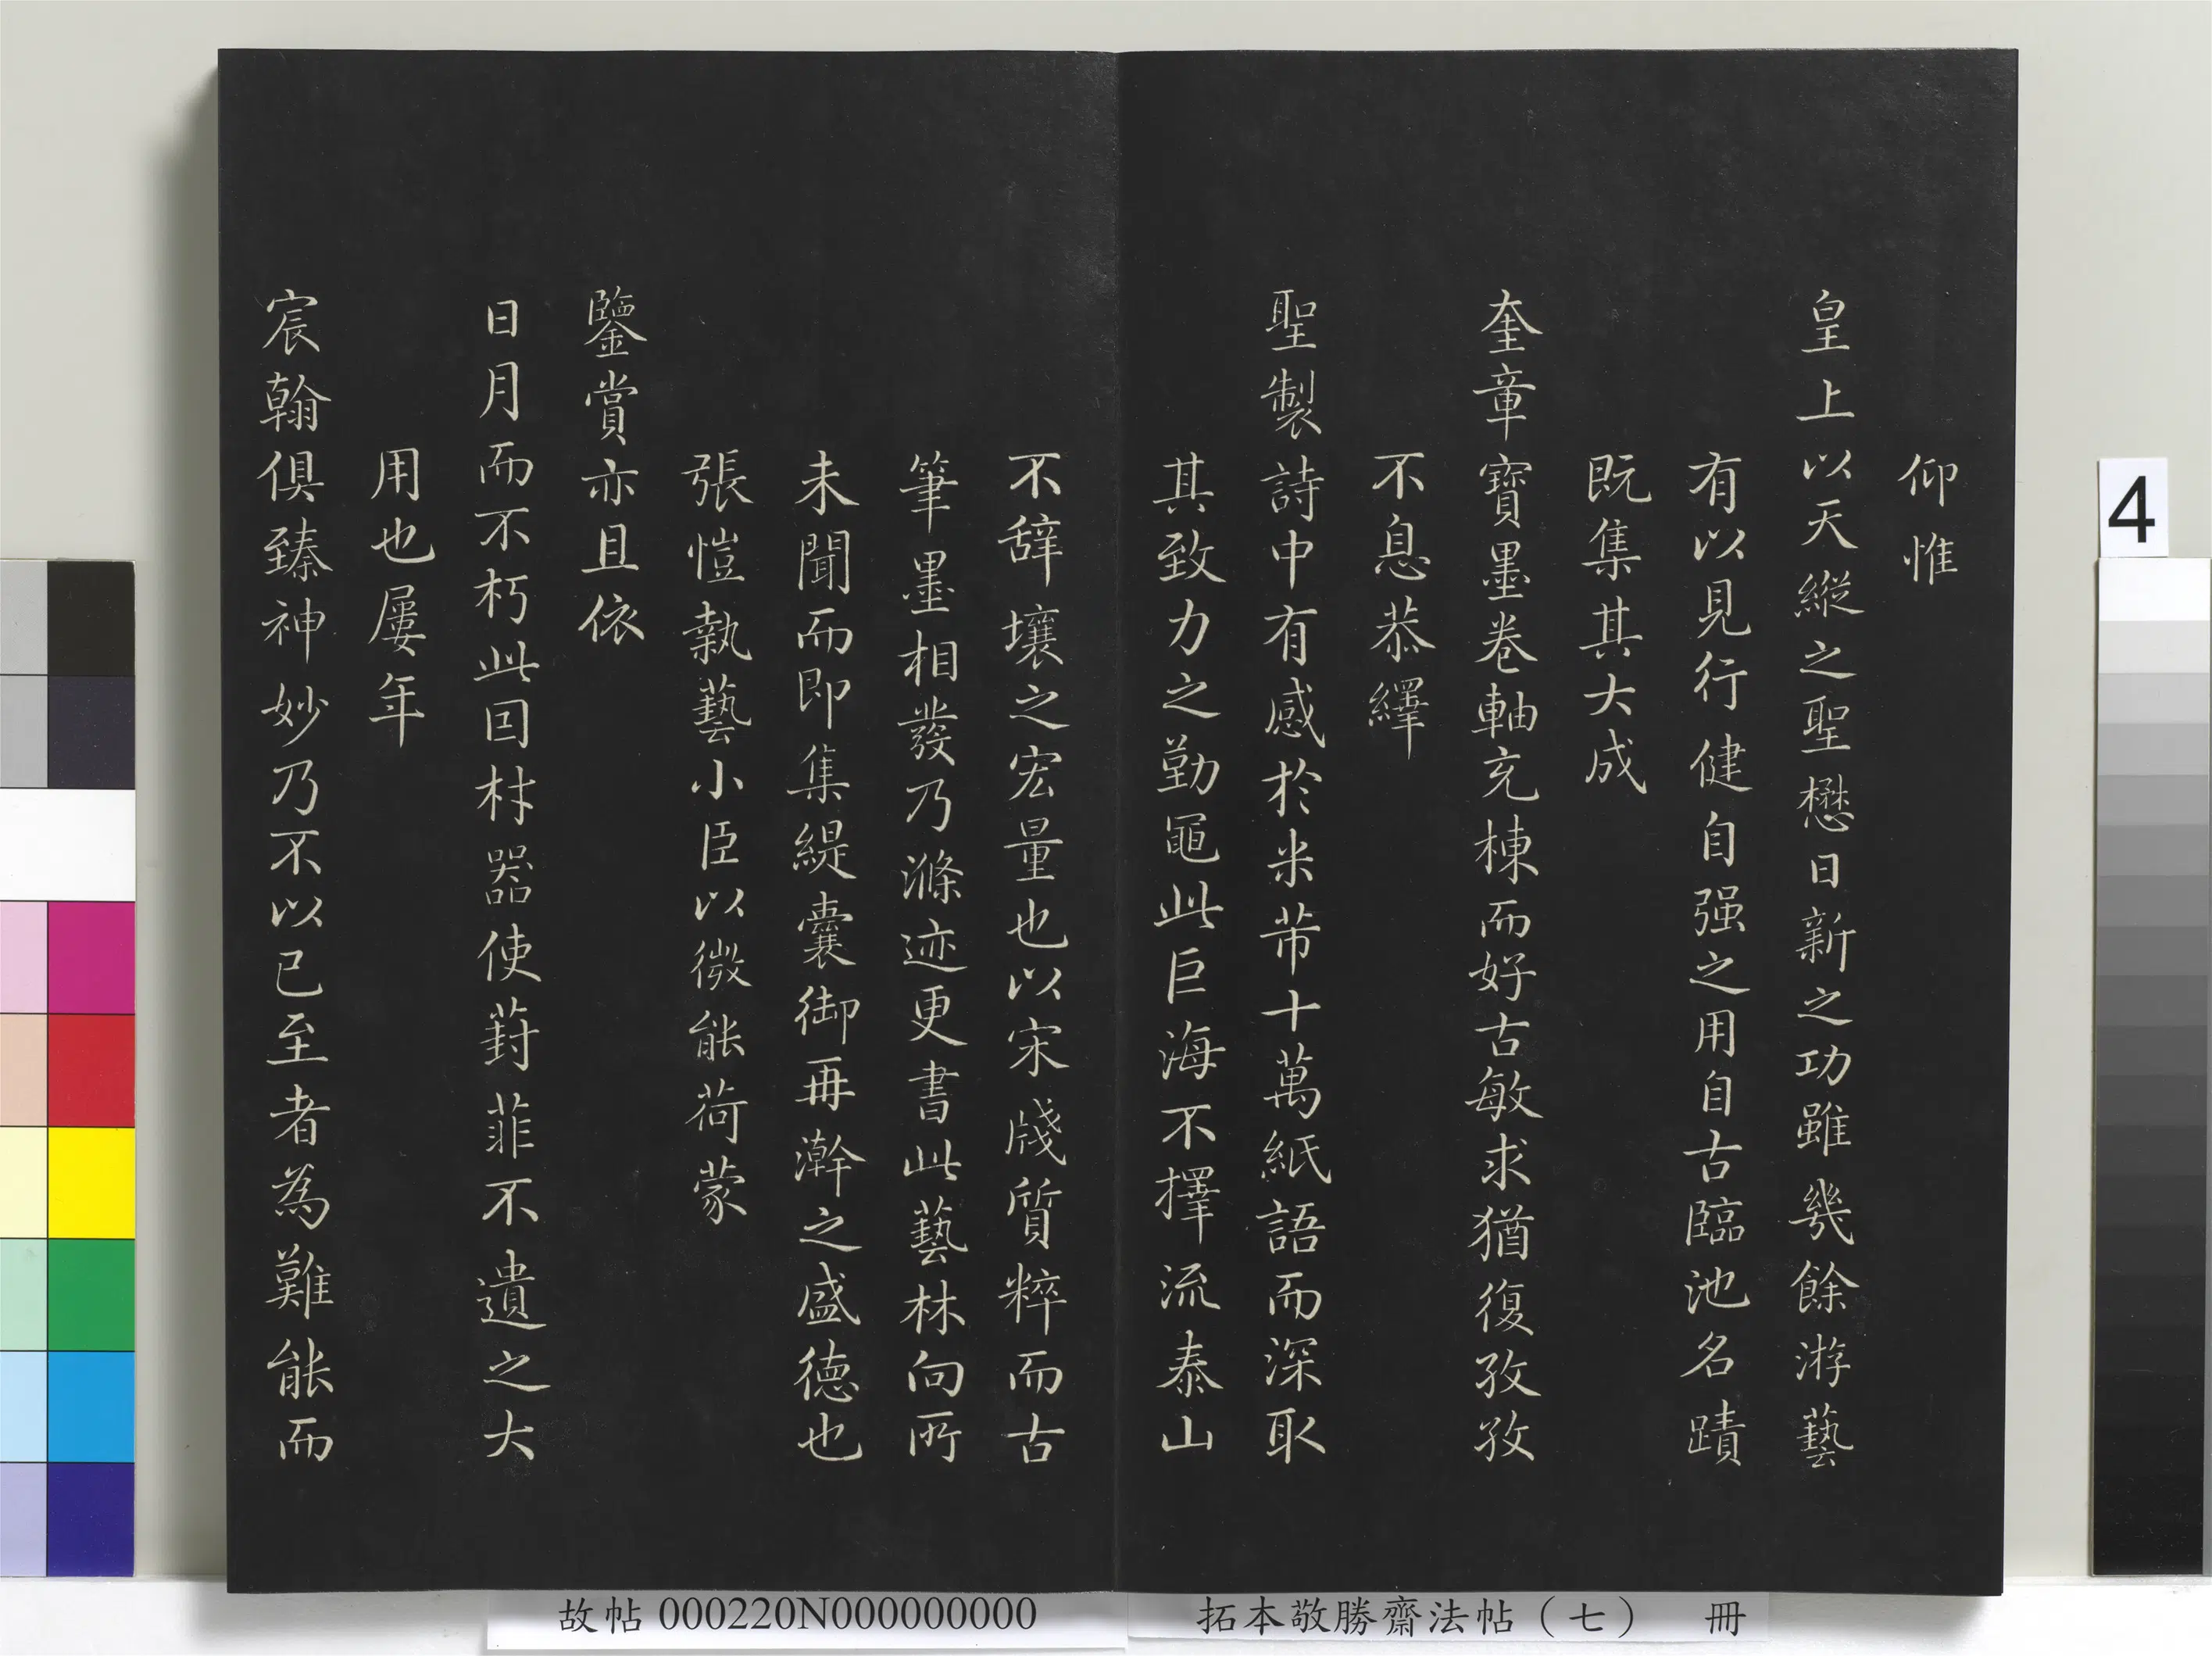 仰惟
皇上以天縱之聖懋日新之功雖幾餘游藝
有以見行健自强之用自古臨池名蹟
既集其大成
奎章寶墨卷軸充棟而好古敏求猶復孜孜
不息恭繹
聖製詩中有感於米芾十萬紙語而深取
其致力之勤黽此巨海不擇流泰山
不辭壤之宏量也以宋牋質粹而古
筆墨相發乃滌迹更書此藝林向所
未聞而即集緹囊御再澣之盛德也
張愷執藝小臣以微能荷蒙
鑒賞亦且依
日月而不朽此因材器使葑菲不遺之大
用也屢年
宸翰俱臻神妙乃不以已至者為難能而
4
故帖 000220N000000000
拓本敬勝齋法帖（七） 冊